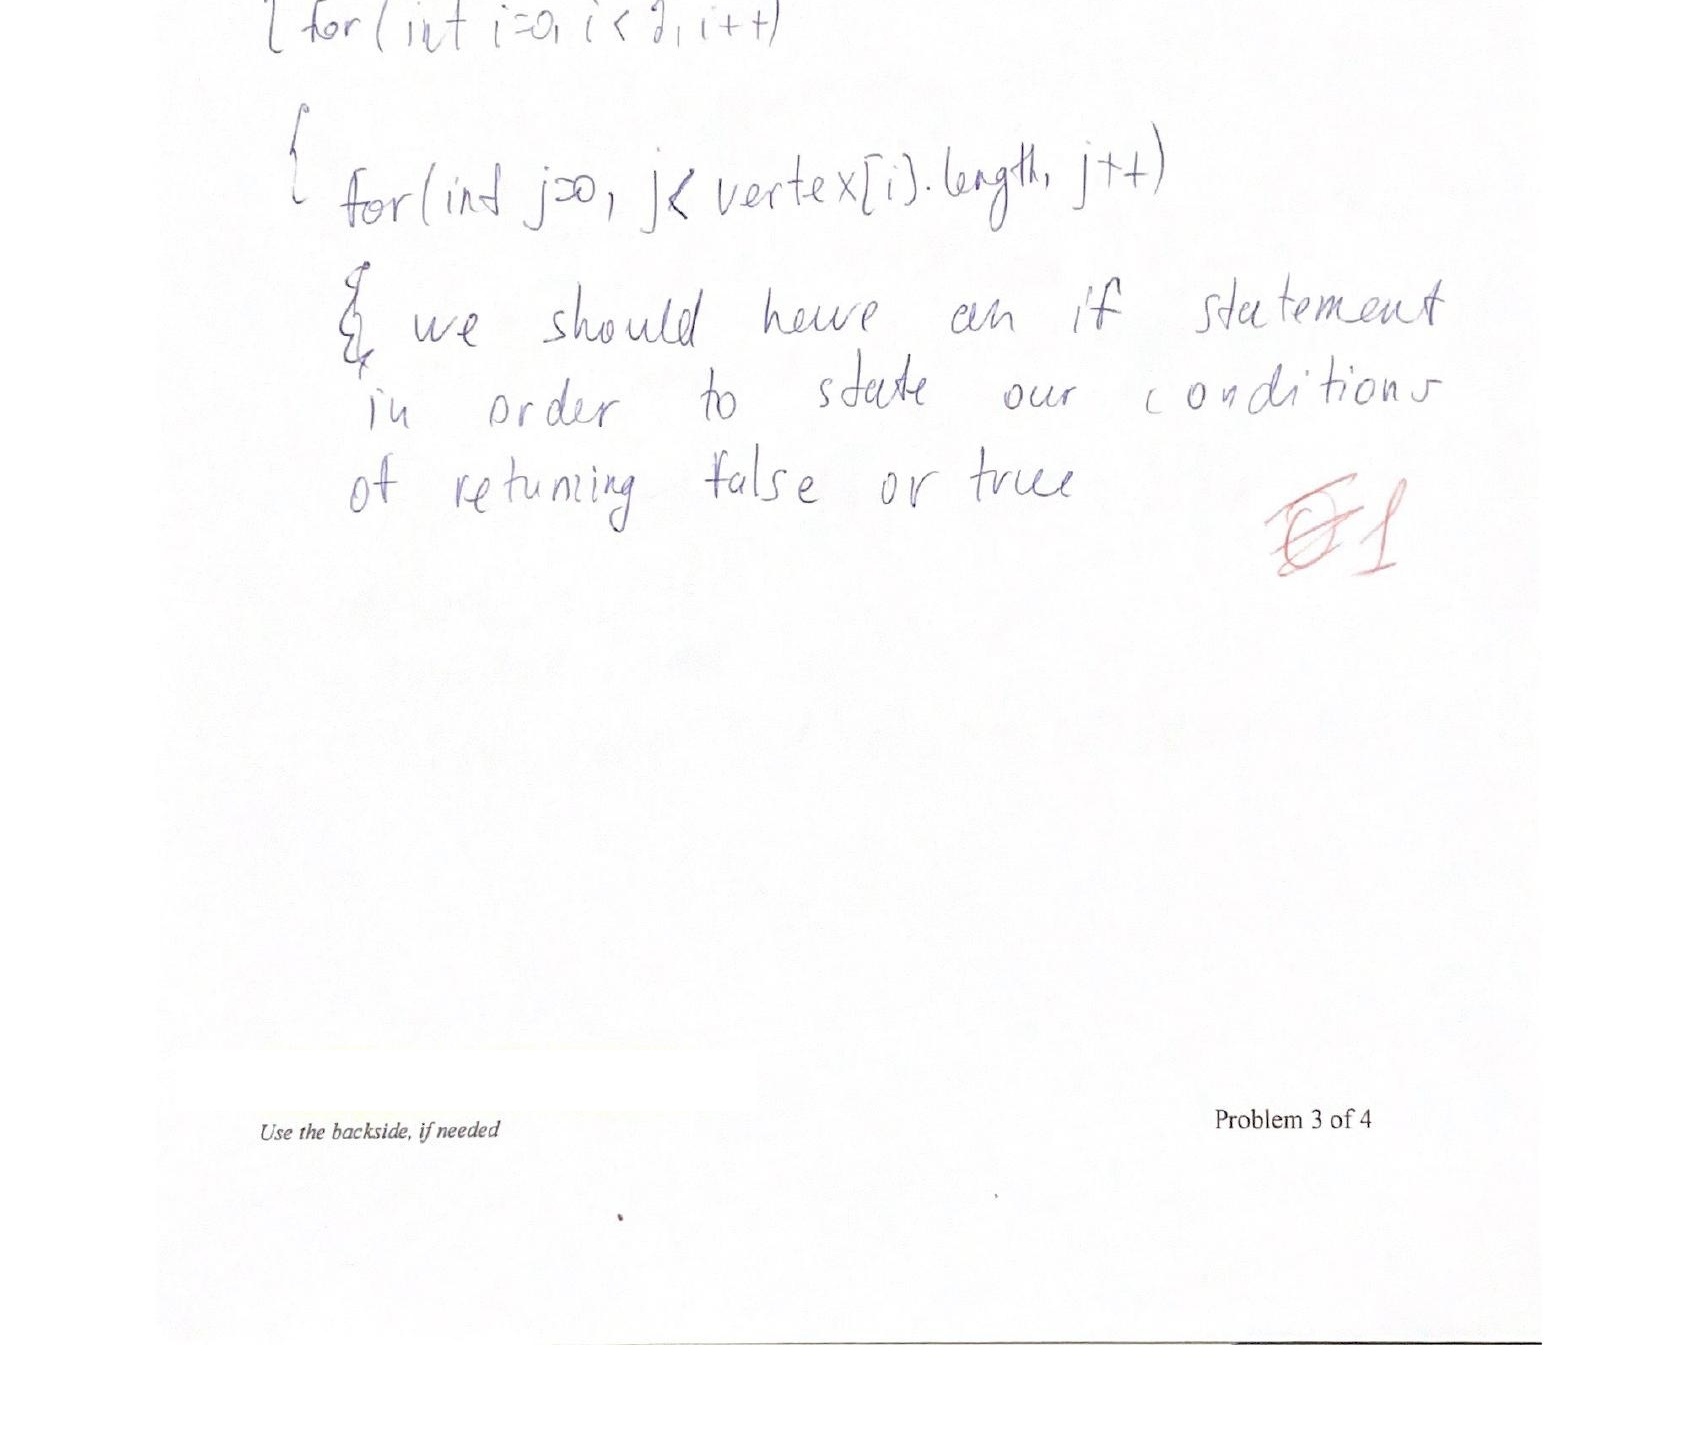 { for (int i=0, i < 2, i++)
{
for (int j=0, j < vertex[i].length, j++)
{ we should have an if statement
in order to state our conditions
of returning false or true
1
Use the backside, if needed
Problem 3 of 4